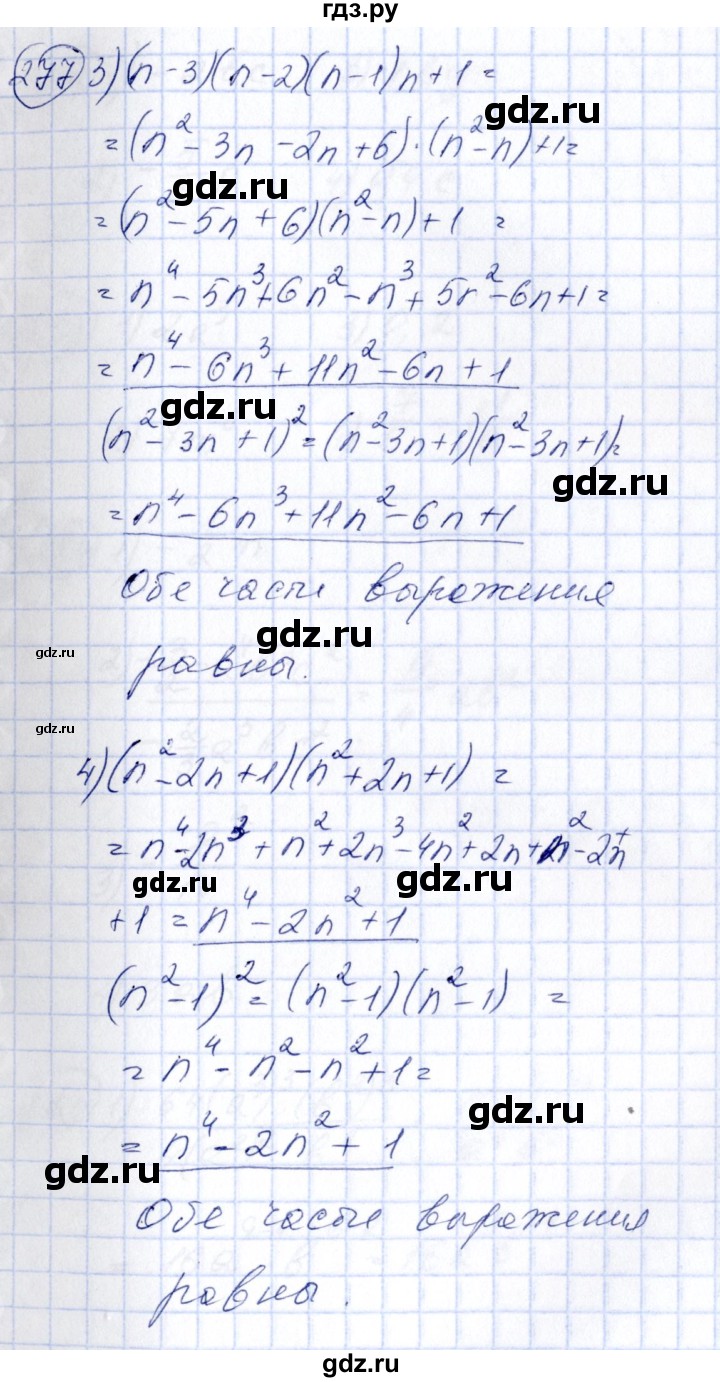 гдз.ру
277 3) (n-3)(n-2)(n-1)n+1=
=(n²-3n-2n+6)·(n²-n)+1=
gdz.ru
=(n²-5n+6)(n²-n)+1 =
gdz.ru
=n⁴-5n³+6n²-n³+5n²-6n+1=
=n⁴-6n³+11n²-6n+1
gdz.ru
(n²-3n+1)²=(n²-3n+1)(n²-3n+1)=
gdz.ru
=n⁴-6n³+11n²-6n+1
Обе части выражения
gdz.ru
gdz.ru
равны.
gdz.ru
4) (n²-2n+1)(n²+2n+1) =
=n⁴-2n³+n²+2n³-4n²+2n+n²-2n+
gdz.ru
gdz.ru
+1=n⁴-2n²+1
(n²-1)²=(n²-1)(n²-1) =
=n⁴-n²-n²+1=
gdz.ru
=n⁴-2n²+1
gdz.ru
Обе части выражения
равны.
gdz.ru